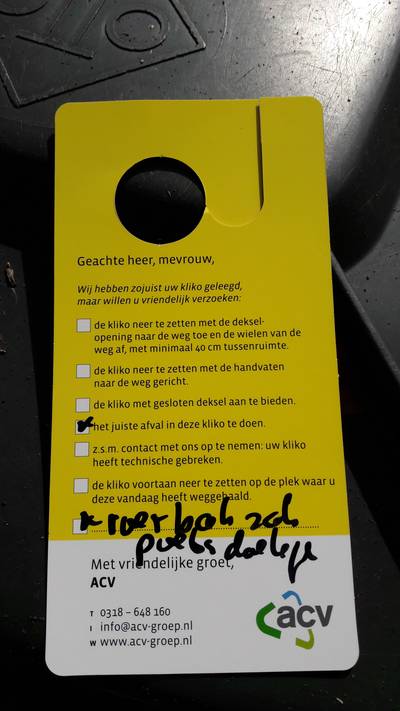 Geachte heer, mevrouw,
Wij hebben zojuist uw kliko geleegd,
maar willen u vriendelijk verzoeken:
de kliko neer te zetten met de deksel-
opening naar de weg toe en de wielen van de
weg af, met minimaal 40 cm tussenruimte.
de kliko neer te zetten met de handvaten
naar de weg gericht.
de kliko met gesloten deksel aan te bieden.
het juiste afval in deze kliko te doen.
z.s.m. contact met ons op te nemen: uw kliko
heeft technische gebreken.
de kliko voortaan neer te zetten op de plek waar u
deze vandaag heeft weggehaald.
Met vriendelijke groet,
ACV
T 0318 - 648 160
I info@acv-groep.nl
W www.acv-groep.nl
acv